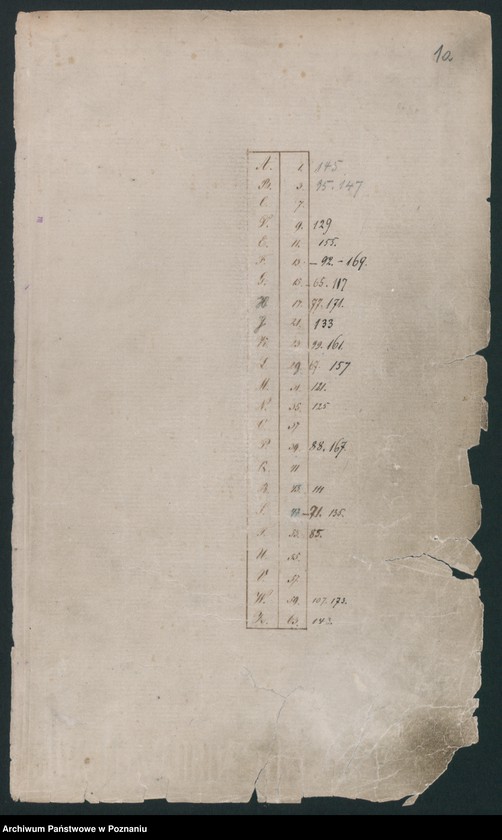 10
A. 1. 145.
B. 3. 95. 147
C. 7.
D. 9. 129
E. 11. 155.
F. 13. - 92. - 169.
G. 15. 65. 117
H 17. 77. 171.
J 21. 133
K. 23. 99. 161.
L 29. 69. 157
M. 31. 121.
N. 35. 125
O. 37
P. 39. 88. 167.
Q.
R. 111
S. 71. 135.
T. 53. 85.
U. 55.
V. 57.
W. 59. 107. 173.
Z. 63. 143.
Archiwum Państwowe w Poznaniu